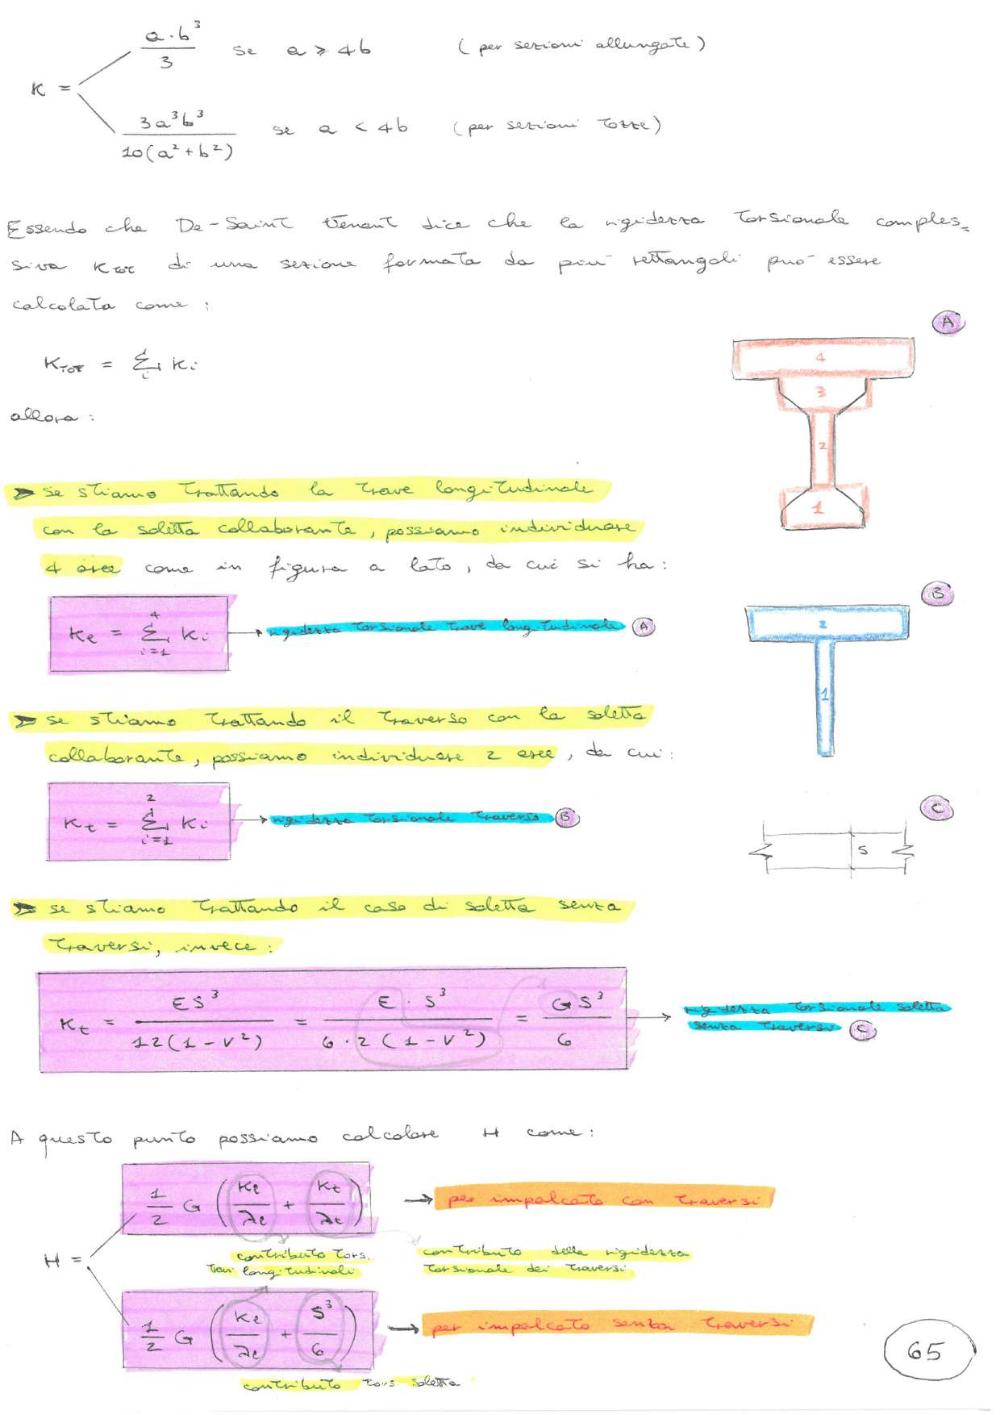 K = a·b³/3 se a ⩾ 4b (per sezioni allungate)
3a³b³/10(a²+b²) se a < 4b (per sezioni tozze)
Essendo che De-Saint Venant dice che la rigidezza torsionale comples=
siva K_TOT di una sezione formata da più rettangoli può essere
calcolata come :
K_TOT = Σ_i K_i
allora :
A
4
3
2
1
➤ se stiamo trattando la trave longitudinale
con la soletta collaborante, possiamo individuare
4 aree come in figura a lato, da cui si ha :
K_l = Σ_{i=1}^{4} K_i → rigidezza torsionale trave longitudinale A
B
2
1
➤ se stiamo trattando il traverso con la soletta
collaborante, possiamo individuare 2 aree, da cui :
K_t = Σ_{i=1}^{2} K_i → rigidezza torsionale traverso B
C
S
➤ se stiamo trattando il caso di soletta senza
traversi, invece :
K_t = ES³/12(1-ν²) = E·S³/6·2(1-ν²) = GS³/6 → rigidezza torsionale soletta
senza traversi C
A questo punto possiamo calcolare H come :
H = 1/2 G (K_l/λ_l + K_t/λ_t) → per impalcato con traversi
contributo tors.
travi longitudinali
contributo della rigidezza
torsionale dei traversi
1/2 G (K_l/λ_l + S³/6) → per impalcato senza traversi
contributo tors soletta
65